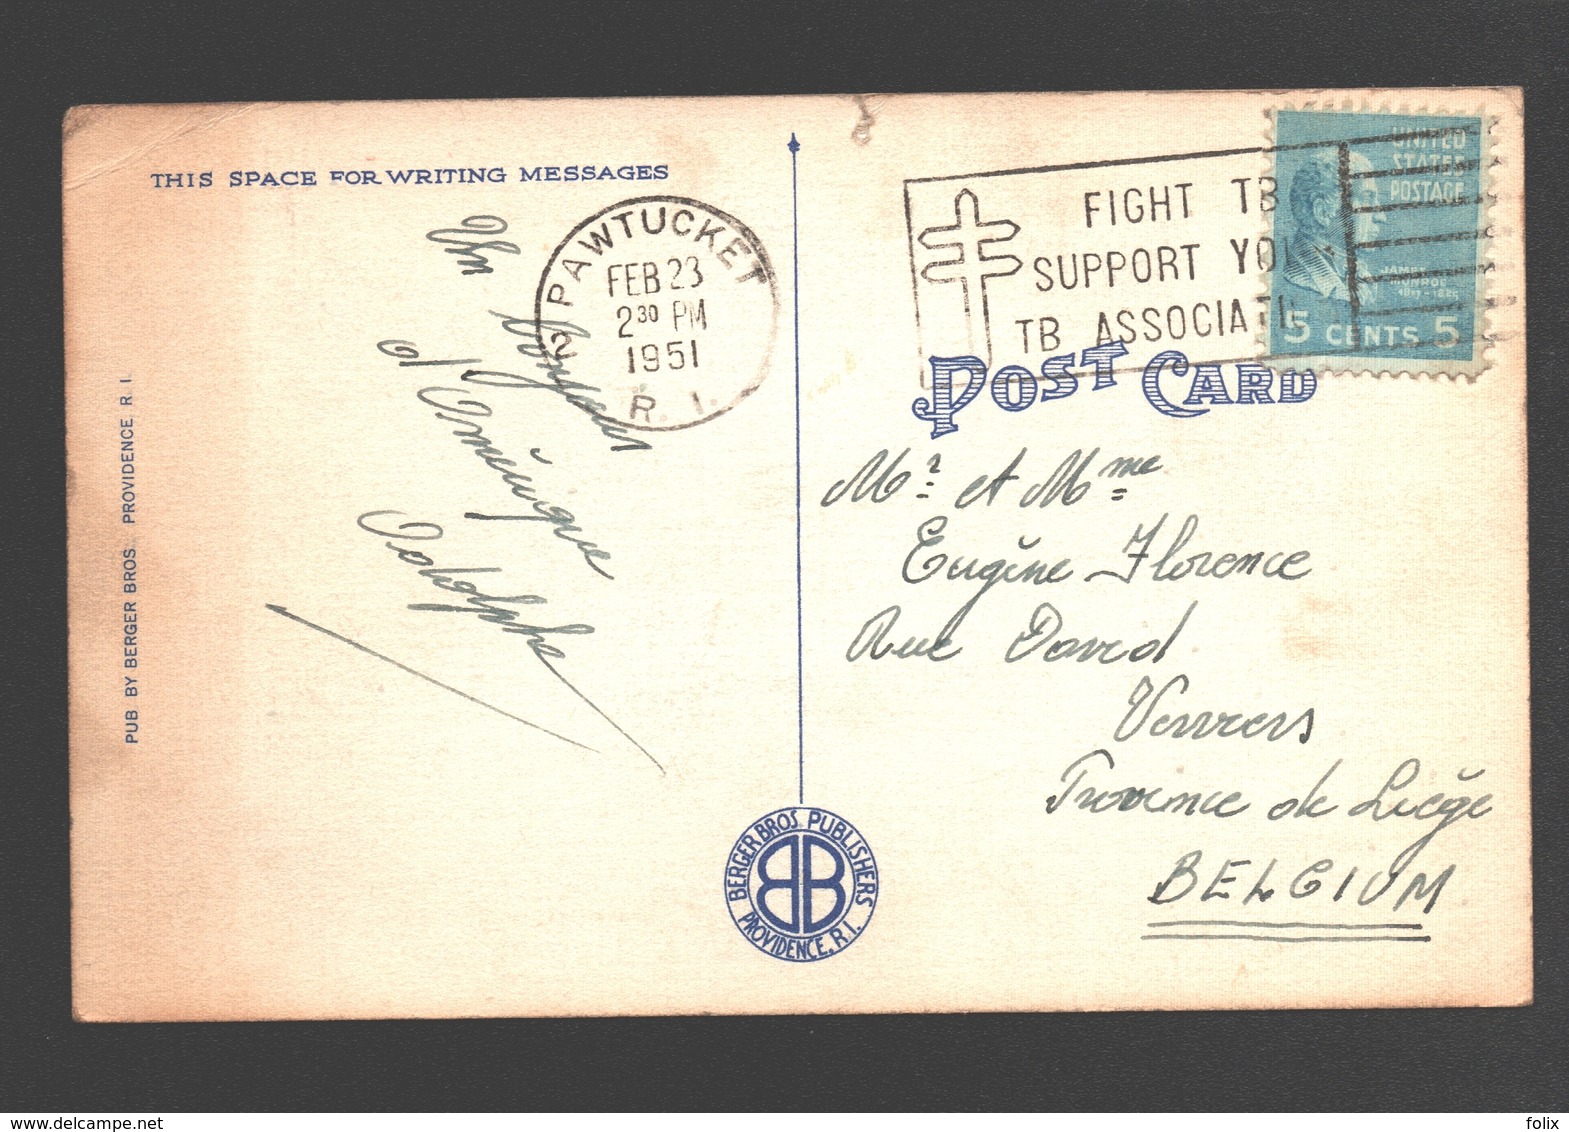 THIS SPACE FOR WRITING MESSAGES
Un bonjour
d'Amérique
Adolphe
PUB BY BERGER BROS. PROVIDENCE R. I.
PAWTUCKET
FEB 23
2 30 PM
1951
R. I.
2
FIGHT TB
SUPPORT YOU
TB ASSOCIATI
UNITED
STATES
POSTAGE
JAMES
MONROE
1817-1825
5 CENTS 5
POST CARD
Mr. et Mme
Eugène Florence
Rue David
Verviers
Province de Liège
BELGIUM
BERGER BROS. PUBLISHERS
BB
PROVIDENCE, R.I.
delcampe.net
folix